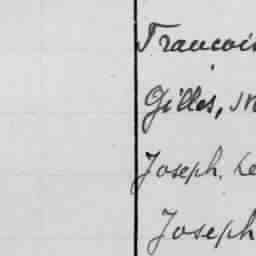 Francois
Gilles, M
Joseph, Le
Joseph